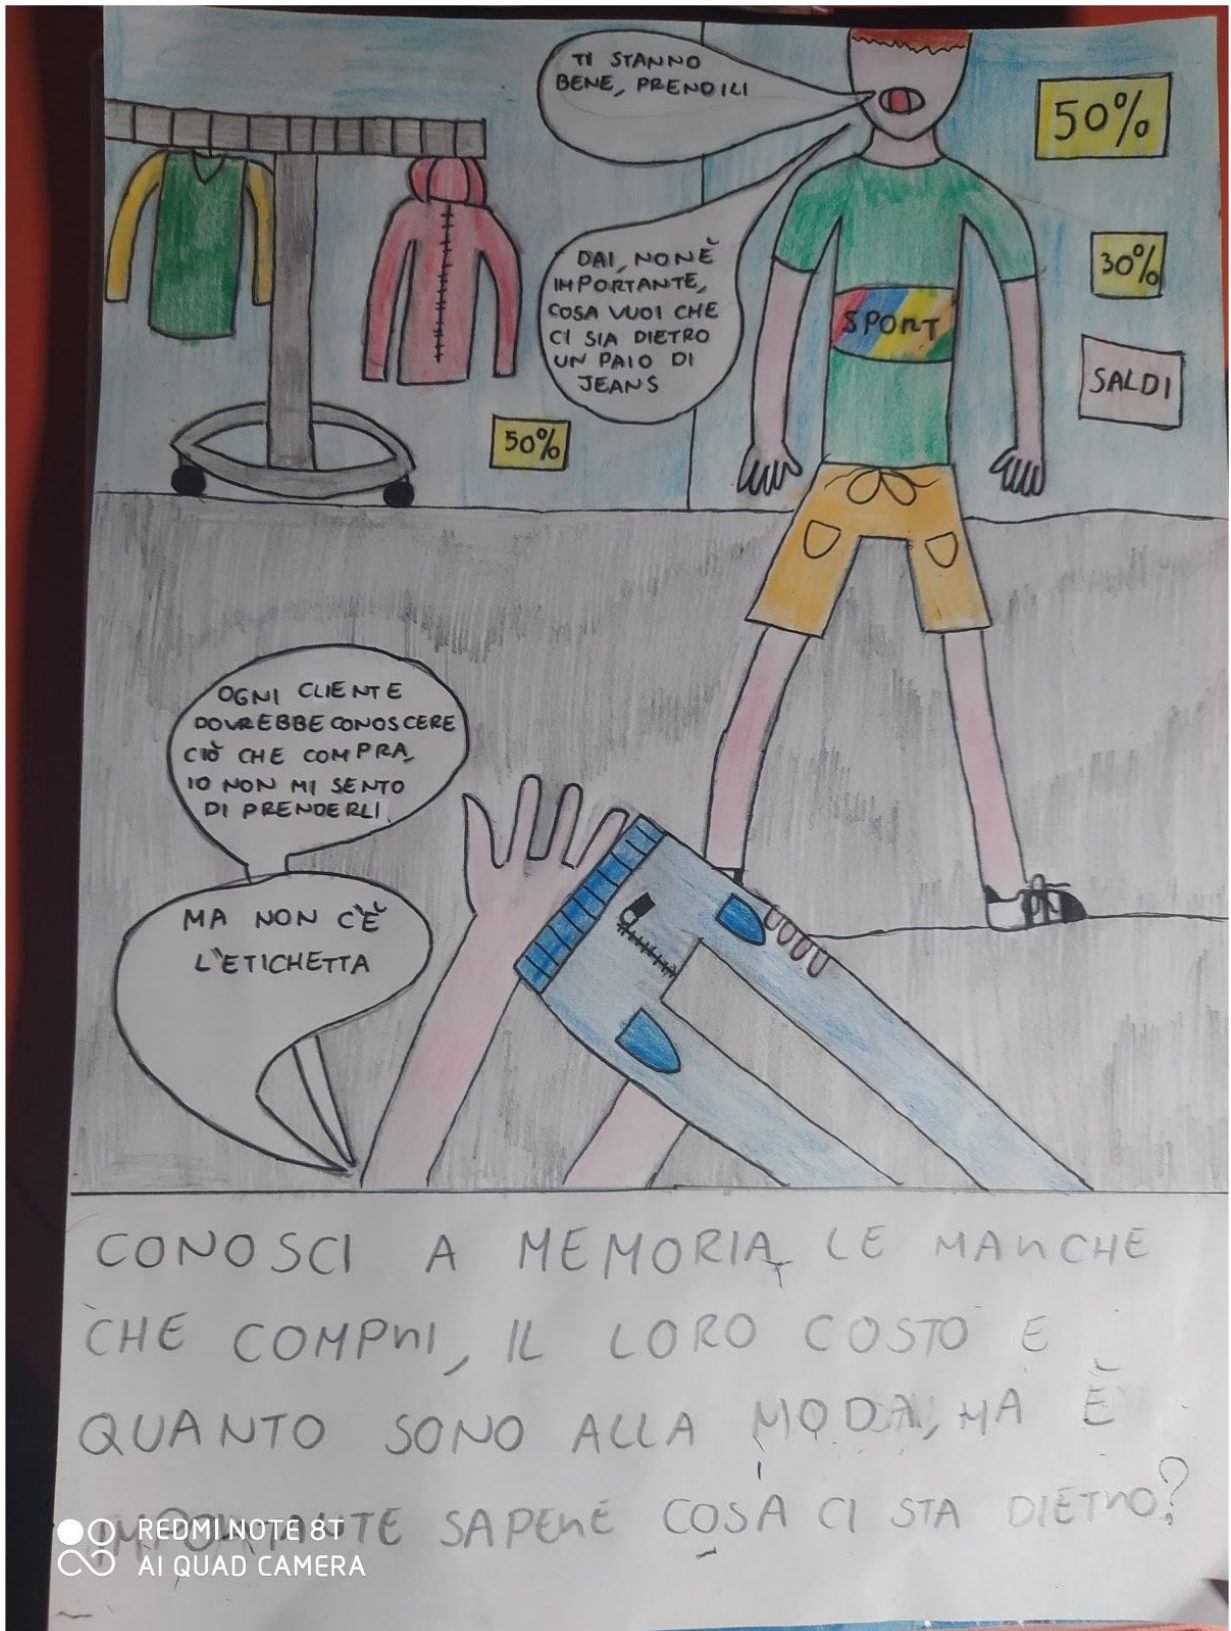 TI STANNO
BENE, PRENDILI
50%
30%
SALDI
DAI, NON È
IMPORTANTE,
COSA VUOI CHE
CI SIA DIETRO
UN PAIO DI
JEANS
SPORT
50%
OGNI CLIENTE
DOVREBBE CONOSCERE
CIÒ CHE COMPRA,
IO NON MI SENTO
DI PRENDERLI.
MA NON C'È
L'ETICHETTA
CONOSCI A MEMORIA LE MARCHE
CHE COMPRI, IL LORO COSTO E
QUANTO SONO ALLA MODA, MA È
IMPORTANTE SAPERE COSA CI STA DIETRO?
REDMI NOTE 8T
AI QUAD CAMERA